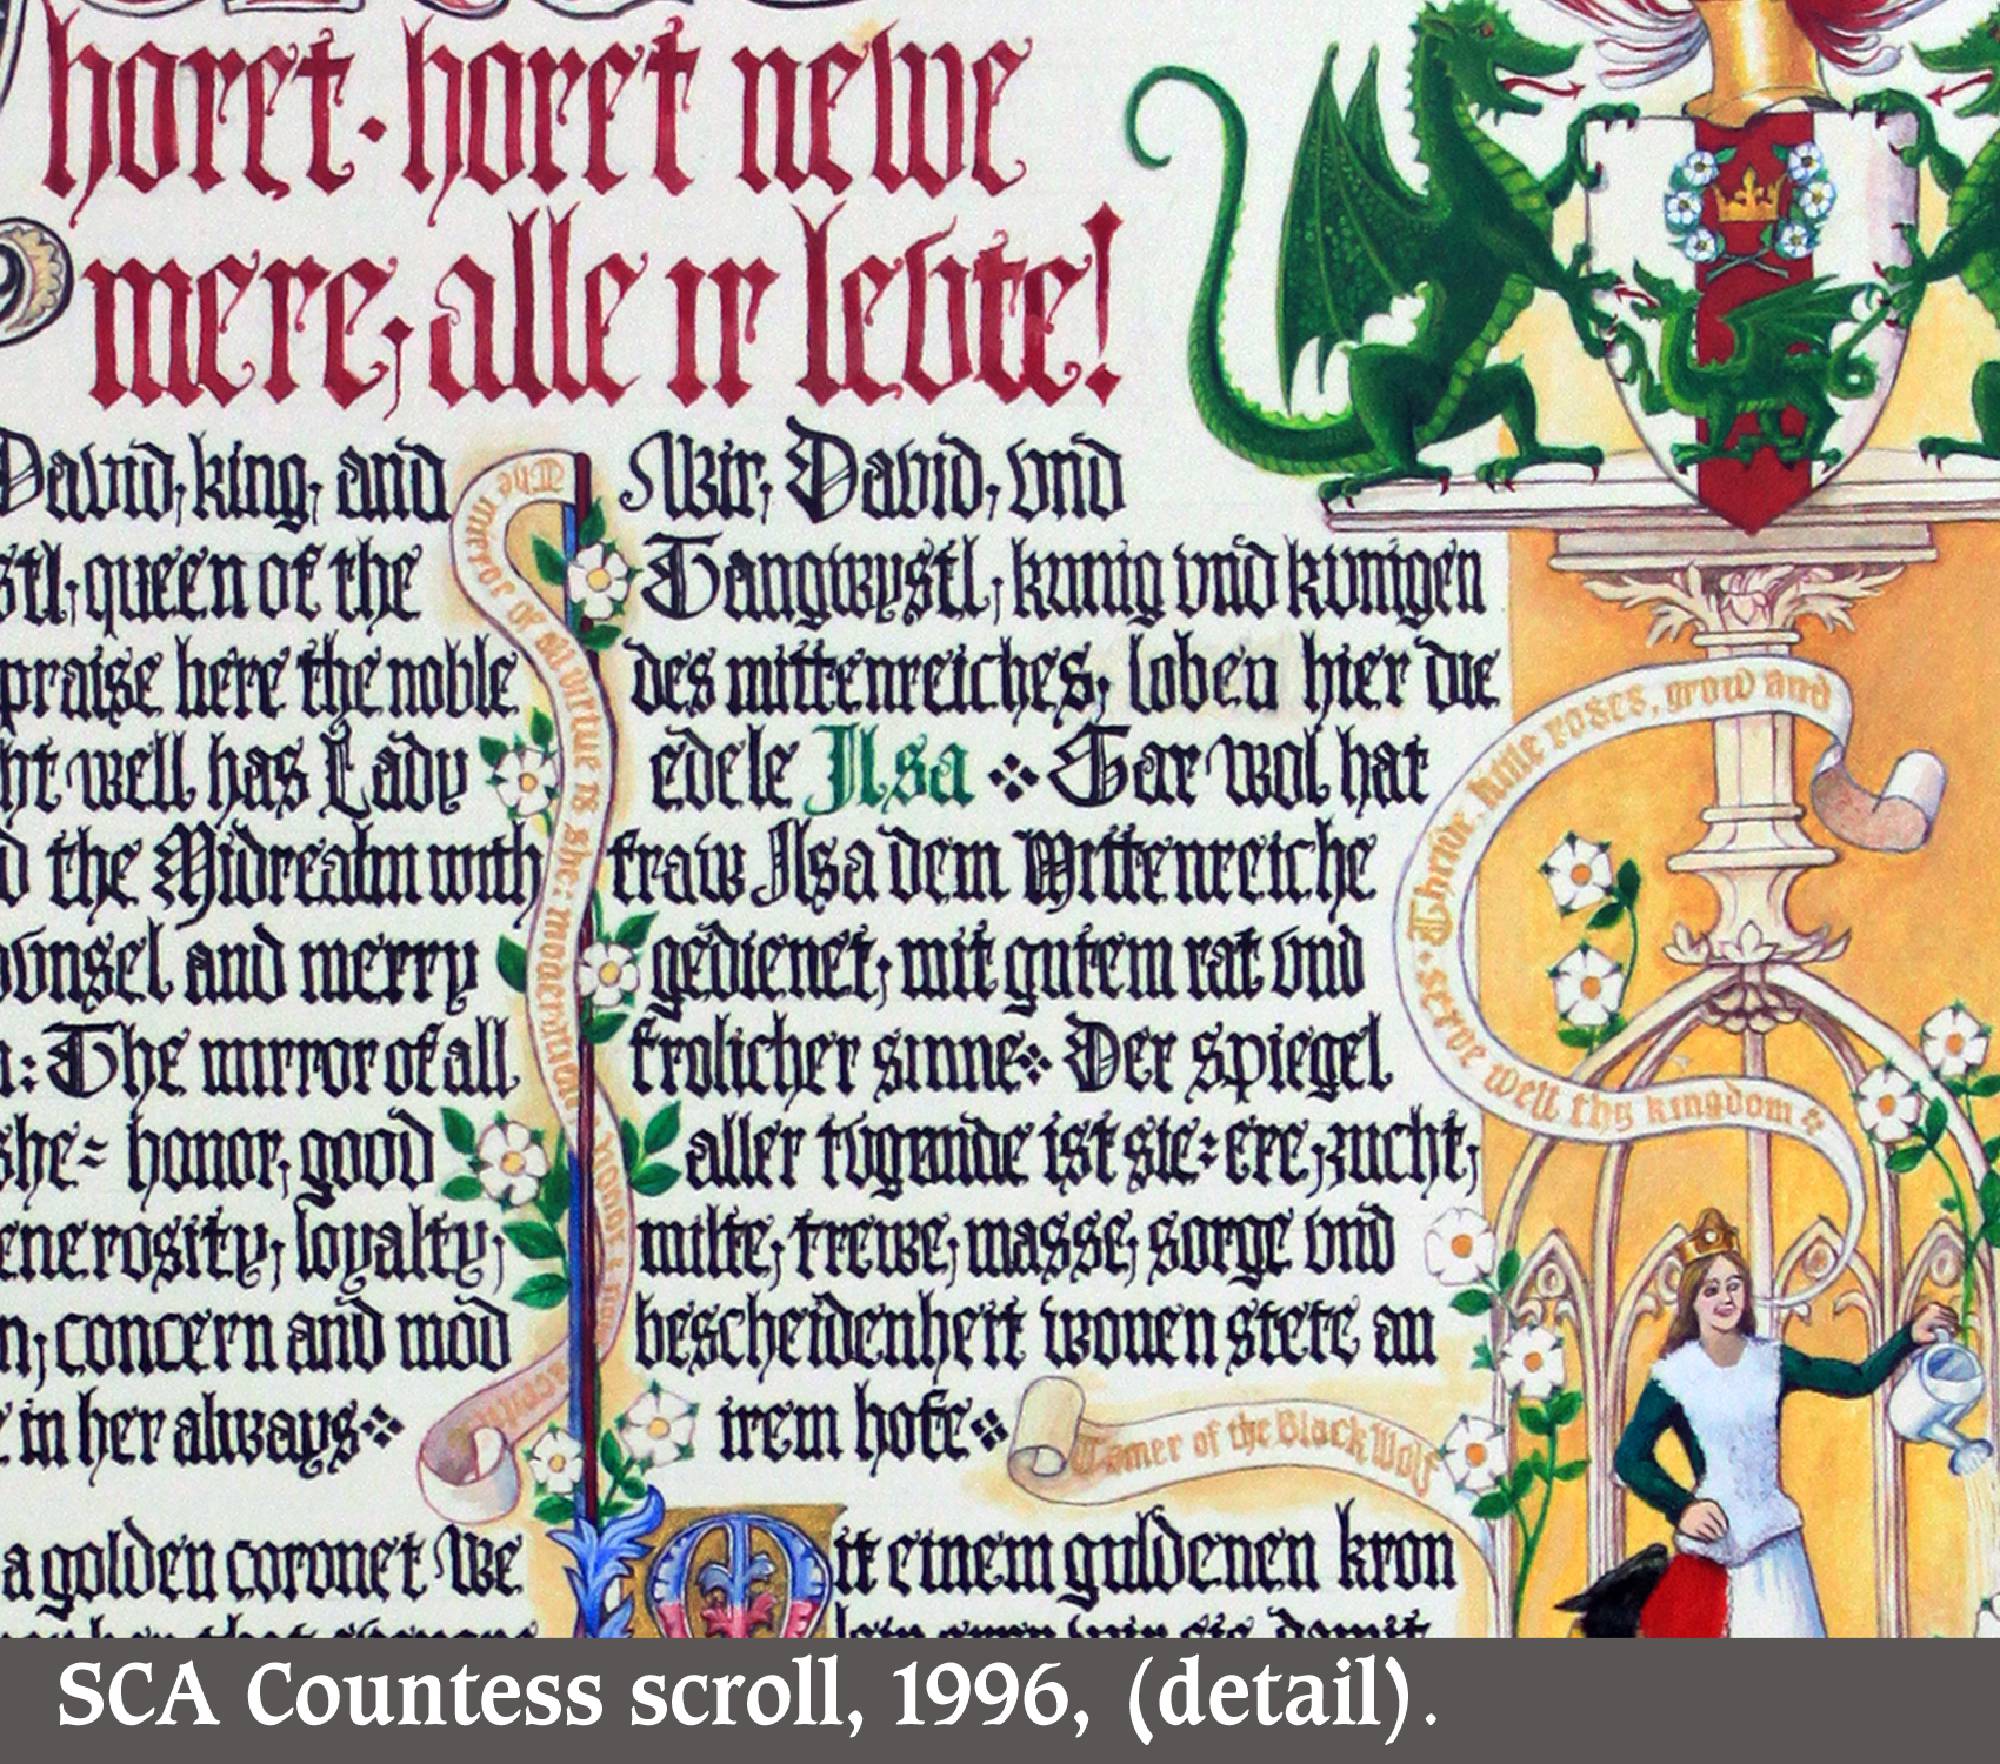 horet · horet newe
mere, alle ir levte!
David, king, and
queen of the
praise here the noble
well has Lady
the Midrealm with
and merry
The mirror of all
she: honor, good
loyalty,
concern and mod
in her always
a golden coronet We
Wir, David, vnd
Tangwystl, kunig vnd kunigen
des mittenreiches, loben hier die
edele Ilsa Gar wol hat
fraw Ilsa dem Mittenreiche
gedienet, mit gutem rat vnd
frolicher sinne Der spiegel
aller tvgende ist sie: ere, zucht,
milte, trewe, masse, sorge vnd
bescheidenheit wonen stete an
irem hofe
Mit einem guldenen kron
lein eren wir sie, damit
The mirror of al virtue is she:
Thrive, roses, grow and
serve well thy kingdom
Tamer of the Black Wolf
SCA Countess scroll, 1996, (detail).